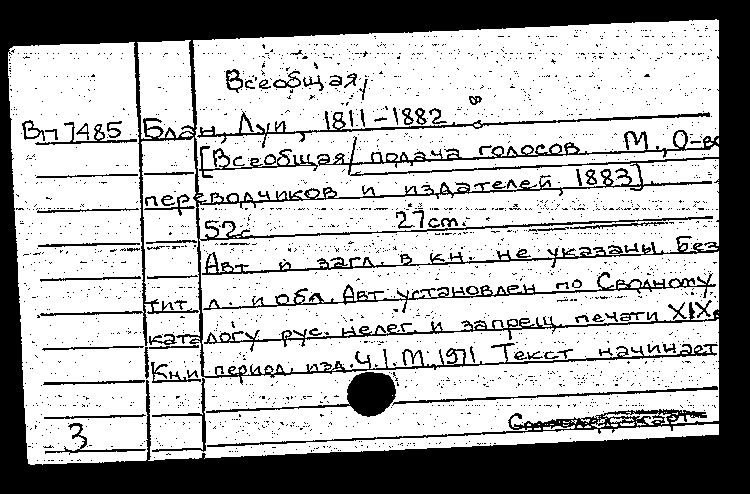 Всеобщая
Вп7485 Блан, Луи, 1811-1882.
[Всеобщая подача голосов. М., О-во
переводчиков и издателей, 1883].
52с 27cm.
Авт. и загл. в кн. не указаны. Без
тит. л. и обл. Авт. установлен по Сводному
каталогу рус. нелег. и запрещ. печати XIXв
Кн.и период. изд. Ч.I. М., 1971. Текст начинает
3